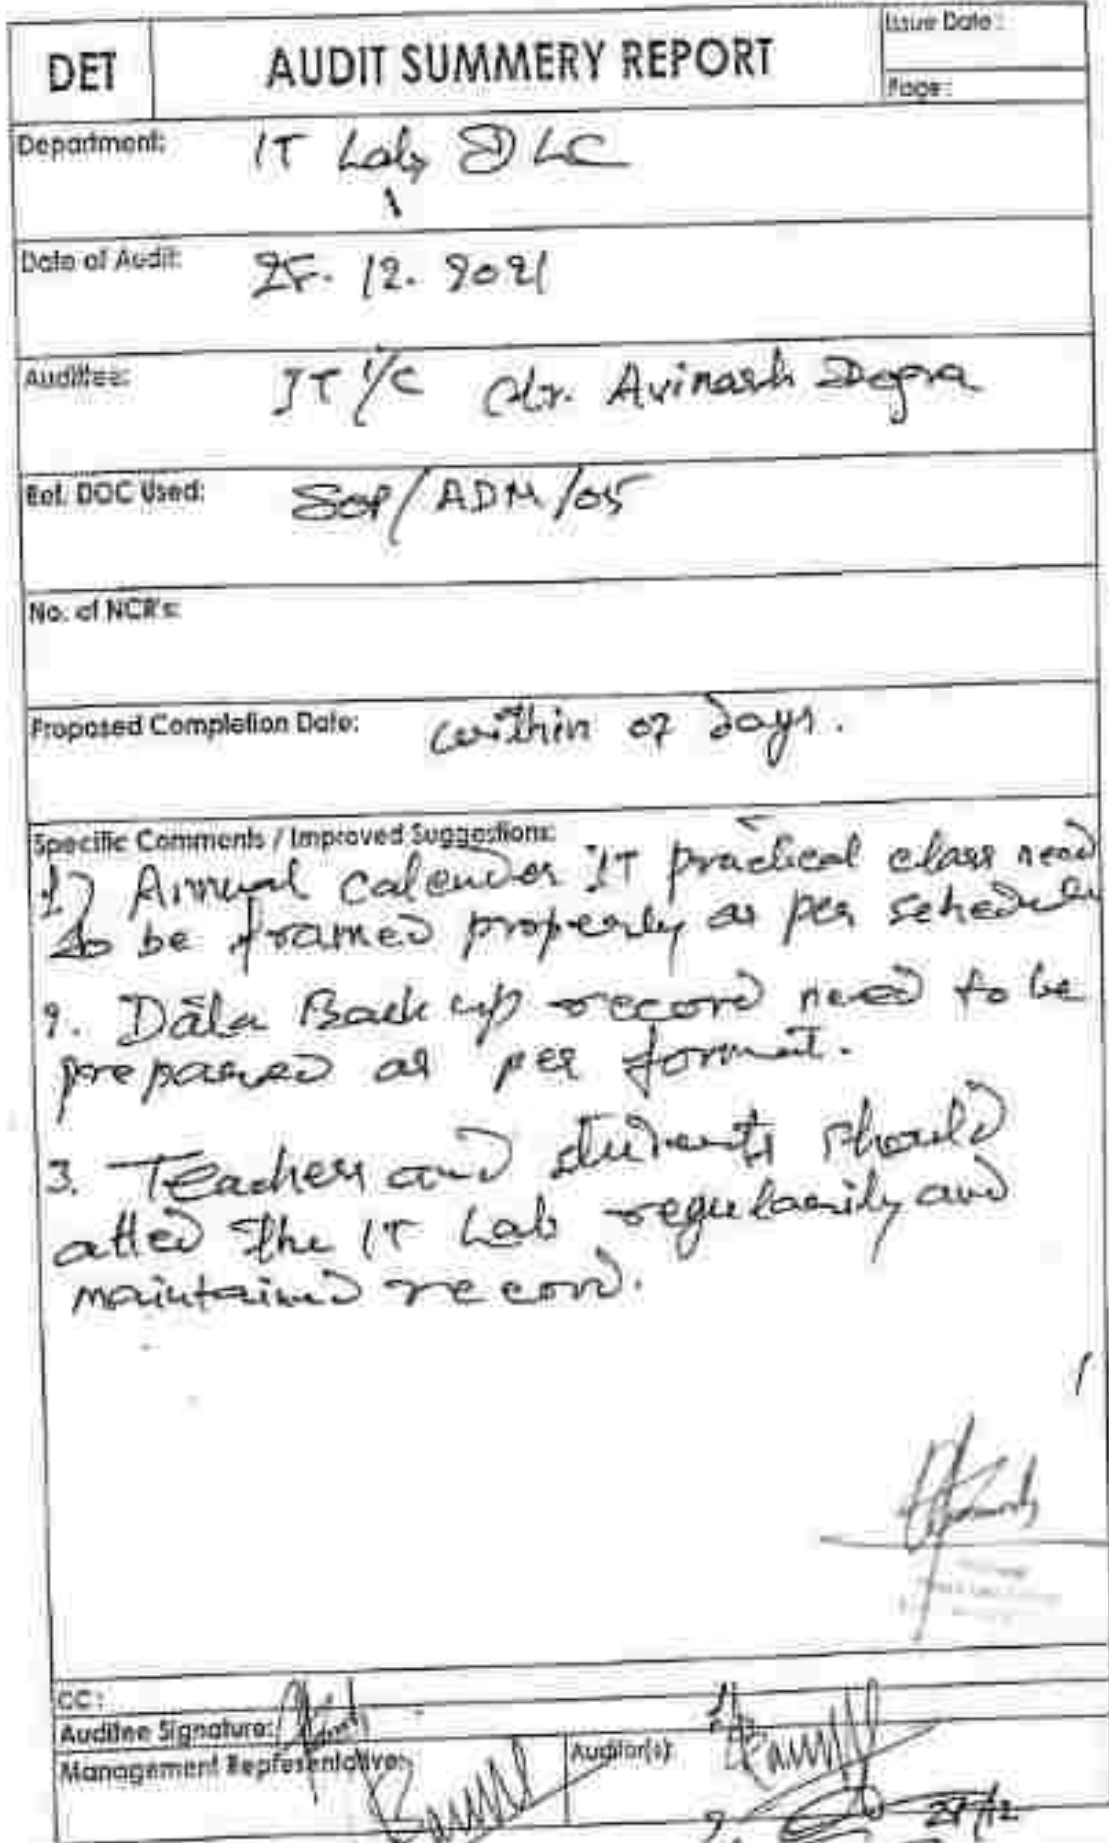 DET
AUDIT SUMMERY REPORT
Issue Date :
Page :
Department: IT Lab, DLC
Date of Audit: 28. 12. 2021
Auditee: IT I/C Mr. Avinash Dogra
Ref. DOC Used: SOP/ADM/05
No. of NCR's:
Proposed Completion Date: within 07 days.
Specific Comments / Improved Suggestions:
1) Annual Calender IT practical class need
to be framed properly as per schedule
2. Data Back up record need to be
prepared as per format.
3. Teachers and students should
atted the IT Lab regularily and
maintained record.
CC :
Auditee Signature:
Management Representative:
Auditor(s)
1.
2.